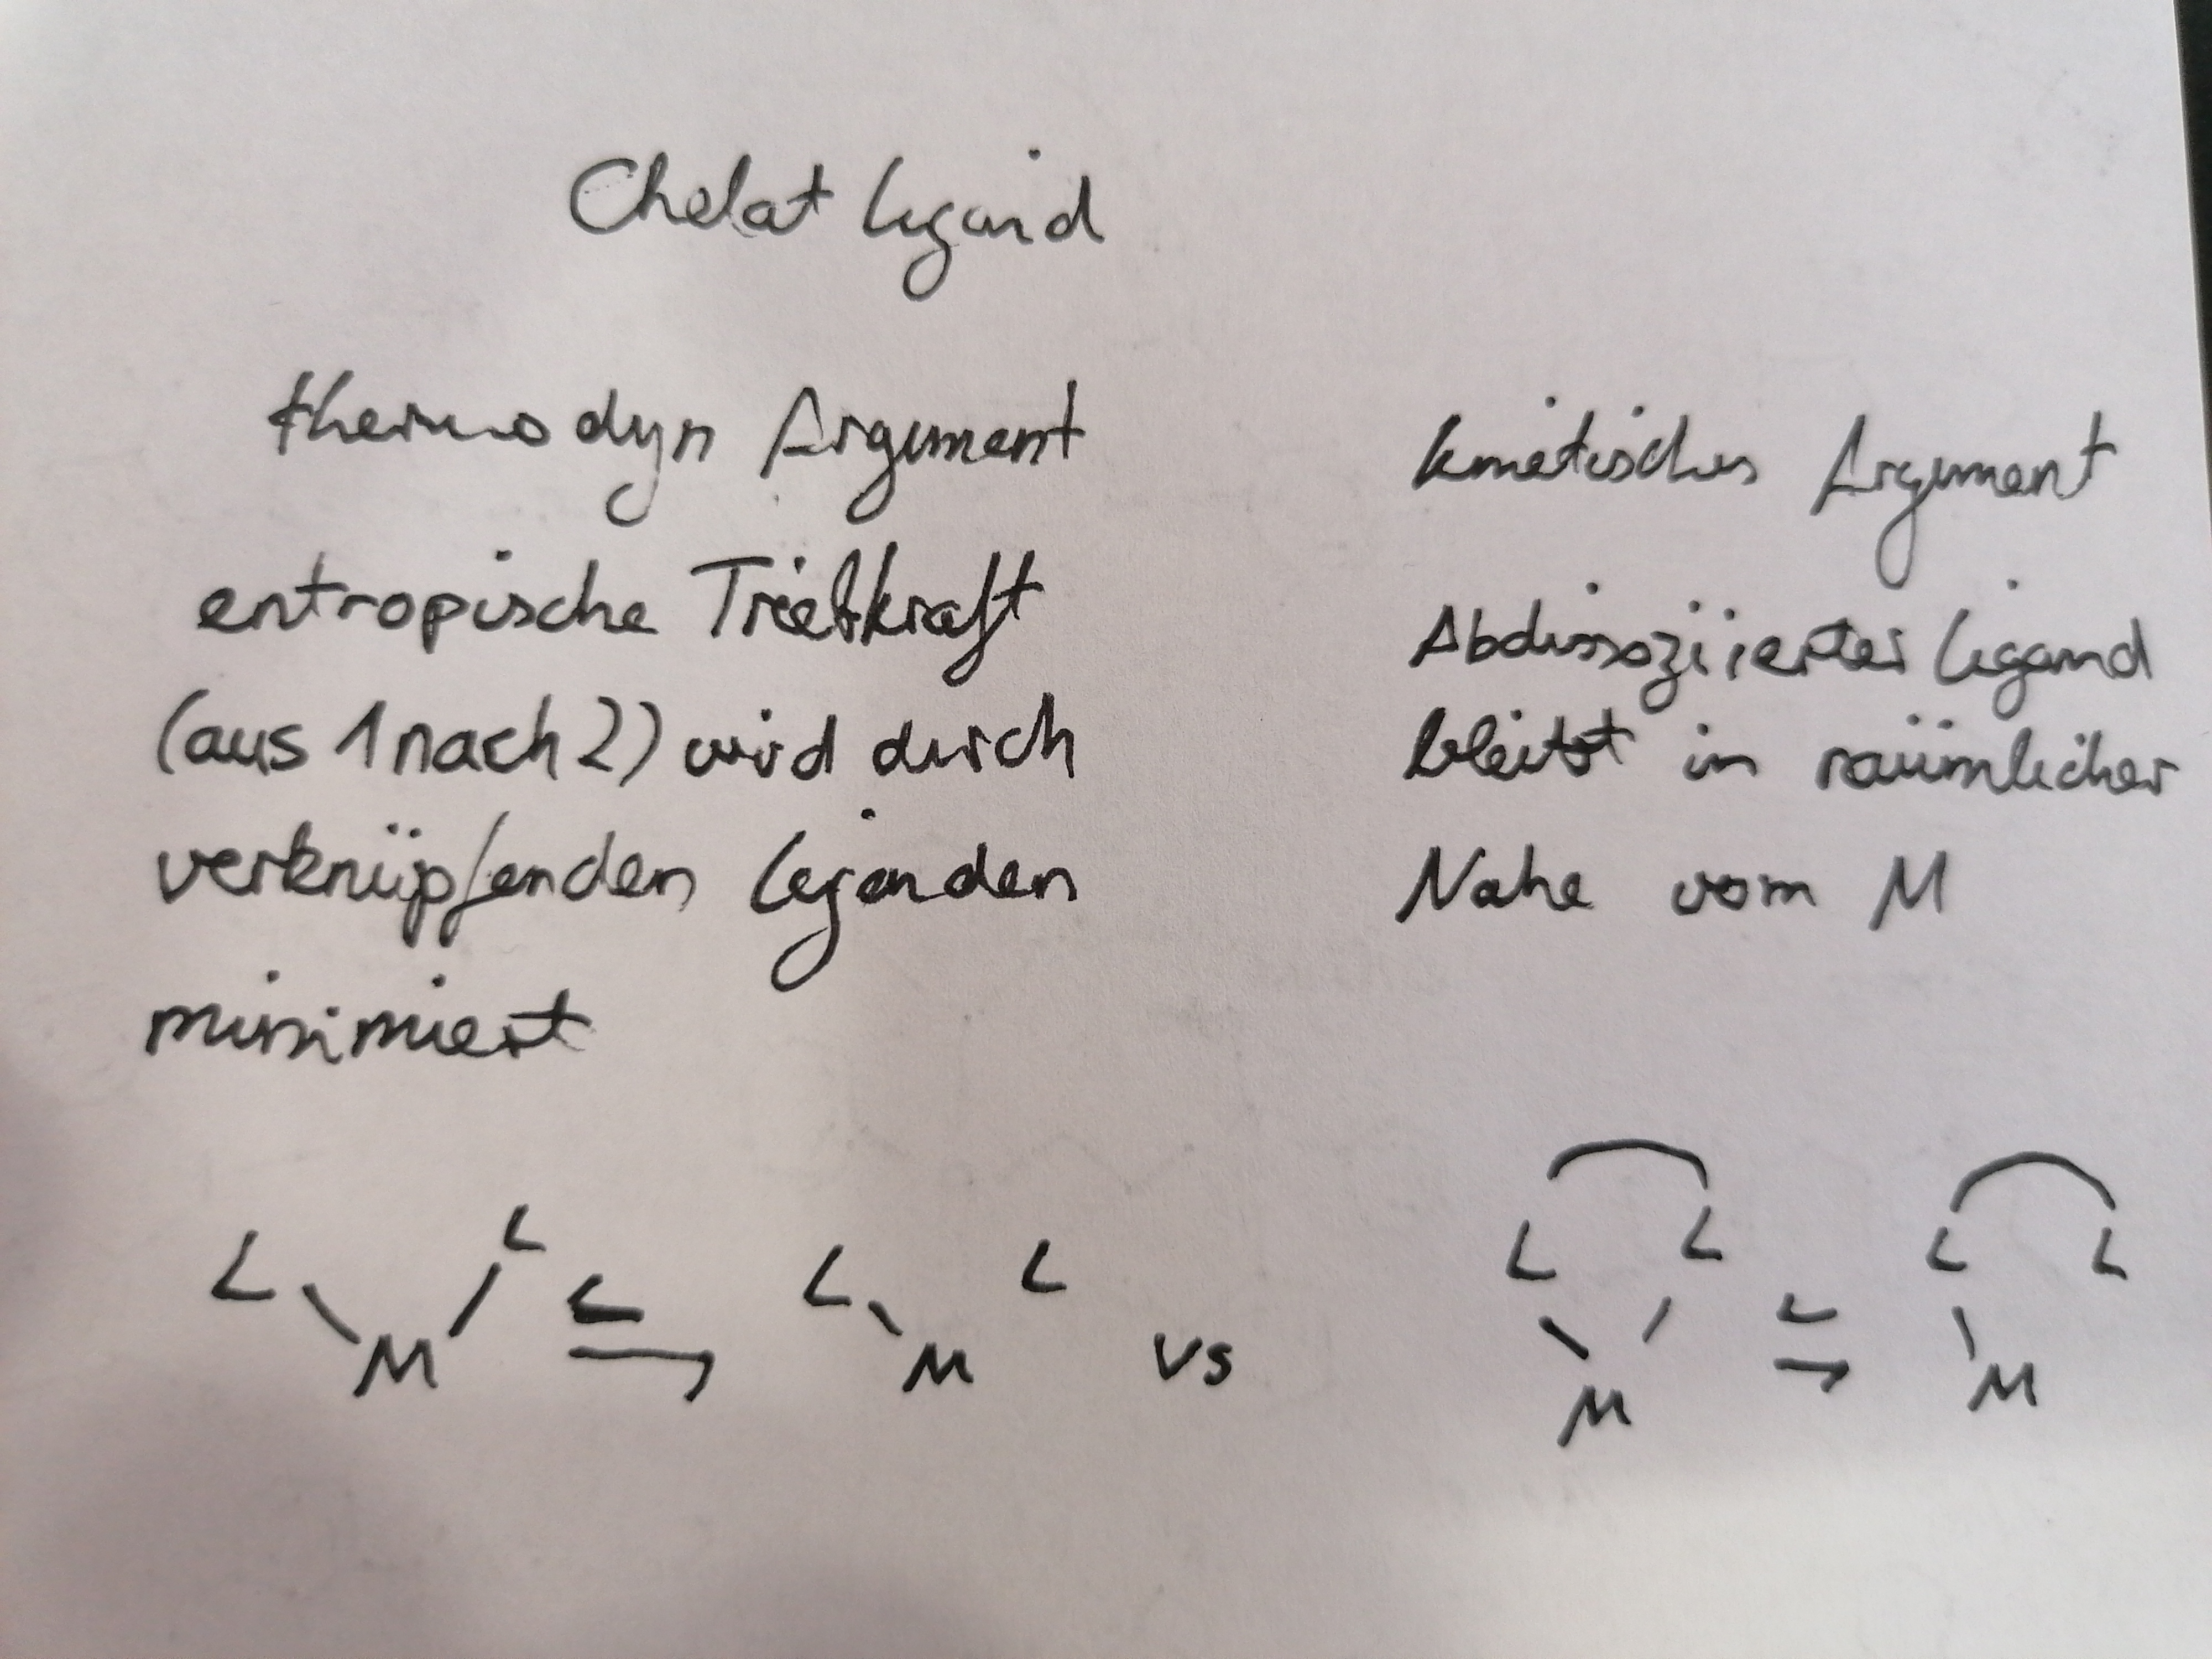 Chelat Ligand
thermodyn Argument
entropische Triebkraft
(aus 1 nach 2) wird durch
verknüpfenden Liganden
minimiert
kinetisches Argument
Abdissoziierter Ligand
bleibt in räumlicher
Nahe vom M
L L L L vs
M M
L L L L
M M